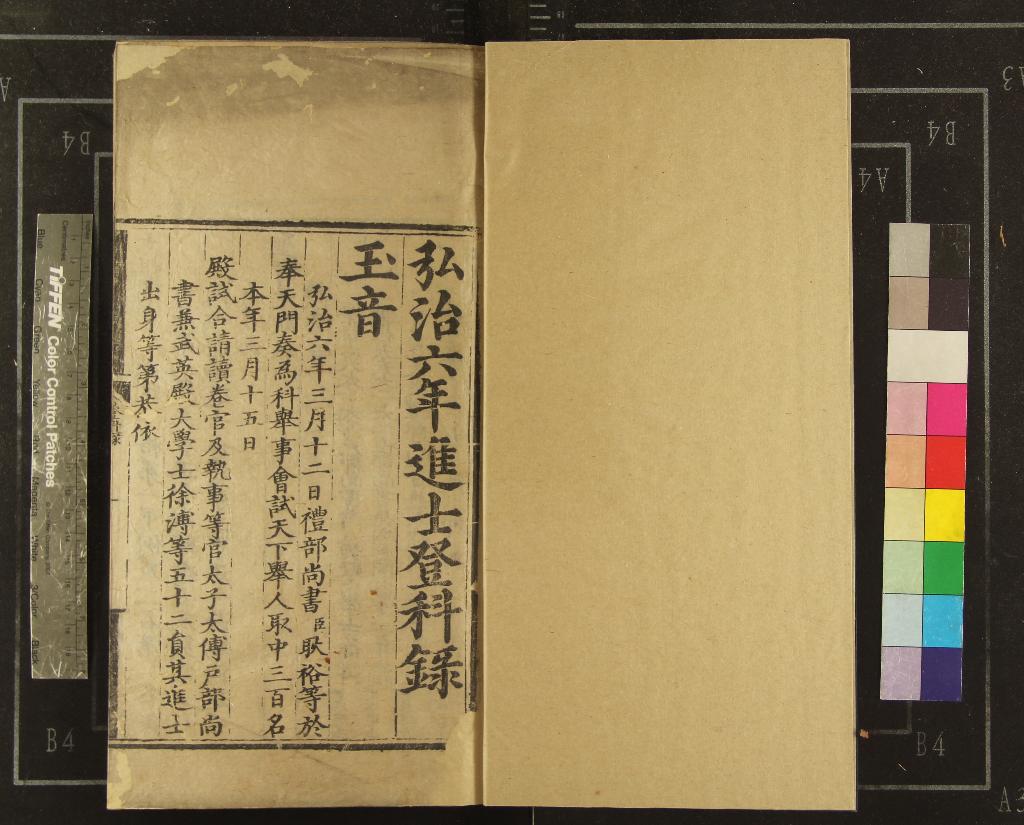 弘治六年進士登科錄
玉音
弘治六年三月十二日禮部尚書臣耿裕等於
奉天門奏爲科舉事會試天下舉人取中三百名
本年三月十五日
殿試合請讀卷官及執事等官太子太傅戶部尚
書兼武英殿大學士徐溥等五十二員其進士
出身等第恭依
TIFFEN Color Control Patches
Blue
Magenta
Black
B4
B4
A4
B4
B4
A3
A3